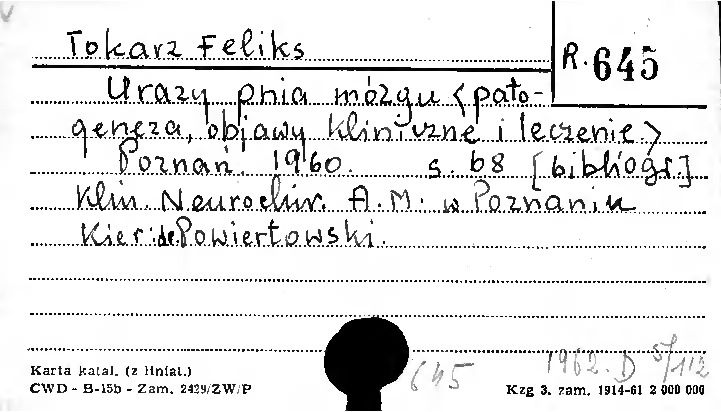 Tokarz Feliks
R. 645
Urazy pnia mózgu <pato-
geneza, objawy kliniczne i leczenie>
Poznań. 1960. s. 68 [bibliogr.]
Klin. Neurochir. A.M. w Poznaniu
Kier: dr. Powiertowski.
645
1962. D 5/112
Karta katal. (z liniat.)
CWD - B-15b - Zam. 2429/ZW/P
Kzg 3. zam. 1914-61 2 000 000